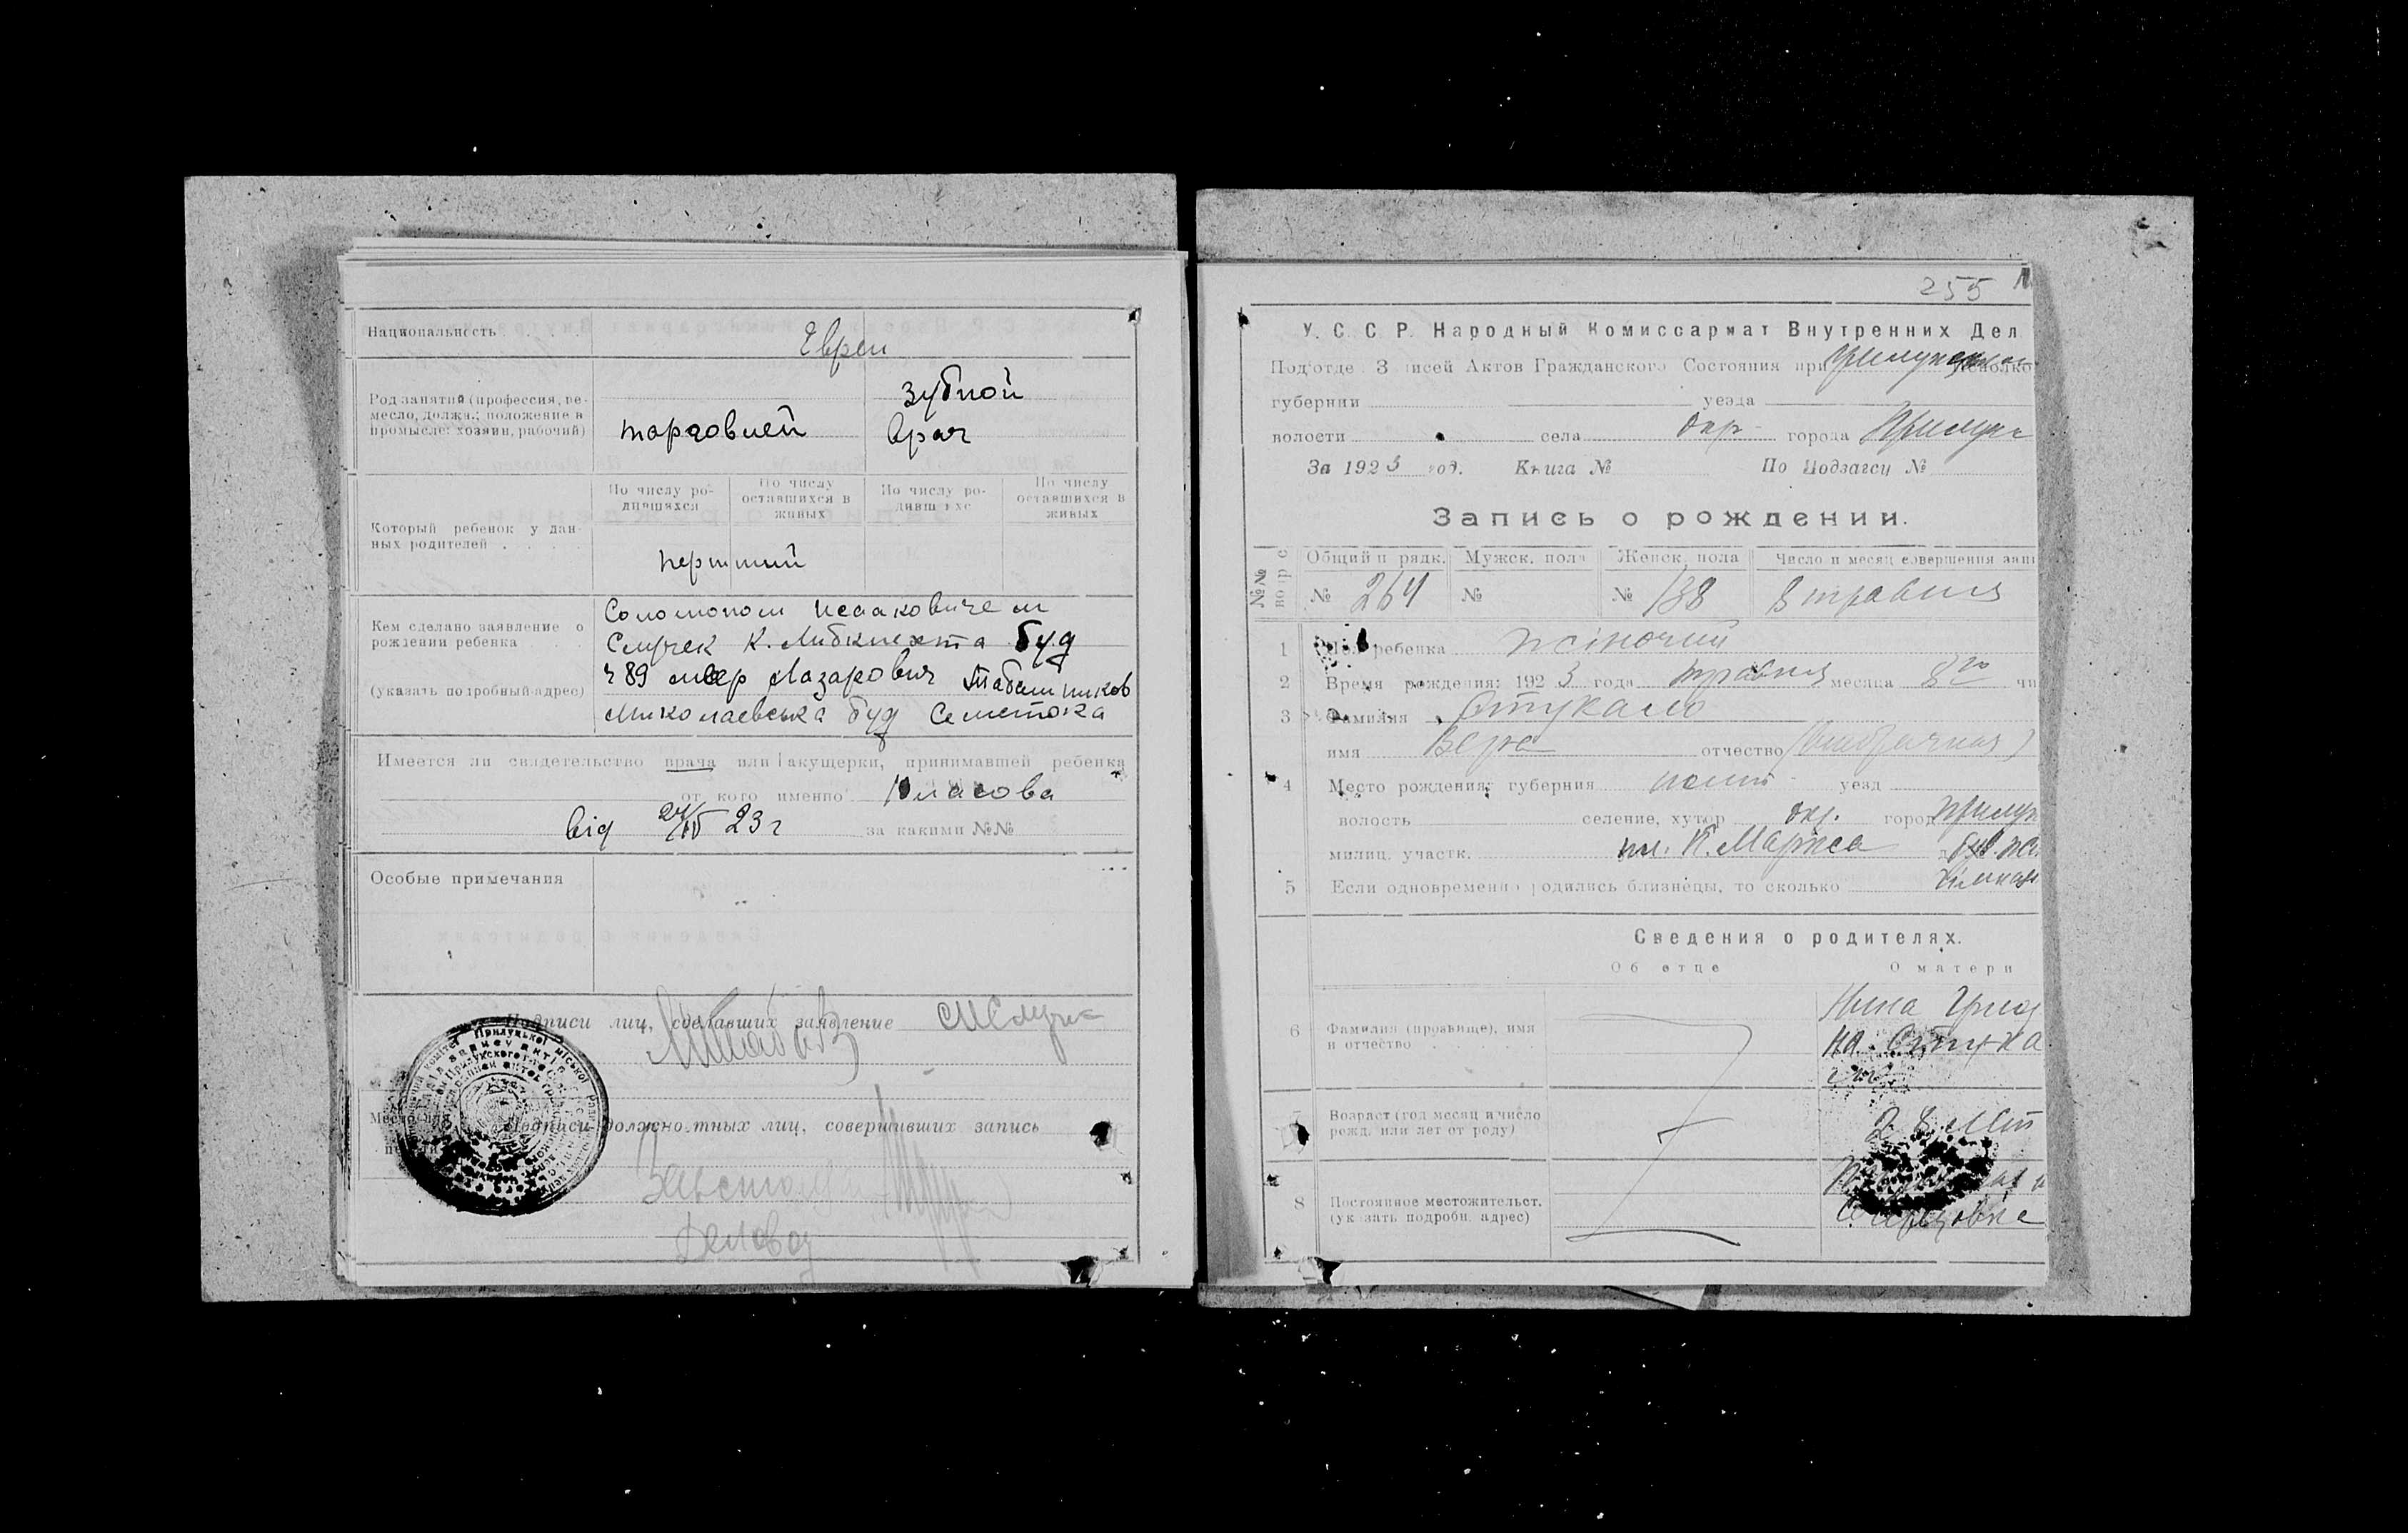 Национальность
Евреи
Род занятий (профессия, ре-
месло, должн.; положение в
промысле: хозяин, рабочий)
торговлей
зубной
врач
Который ребенок у дан-
ных родителей
По числу ро-
дившихся
По числу
оставшихся в
живых
По числу ро-
дивш хс
По числу
оставшихся в
живых
перший
Кем сделано заявление о
рождении ребенка
(указать подробный адрес)
Соломоном Исааковичем
Случек К. Либкнехта буд
ч 89 Меер Лазарович
Миколаевська буд
Имеется ли свидетельство врача или акушерки, принимавшей ребенка
от кого именно Власова
від 24/IV 23 г за какими №№
Особые примечания
Подписи лиц, сделавших заявление
Подписи должностных лиц, совершивших запись
Деловод
255
У. С. С. Р. Народный Комиссариат Внутренних Дел
Подотде З исей Актов Гражданского Состояния при
губернии уезда
волости села окр. города Прилуки
За 1923 год. Книга № По Подзагсу №
Запись о рождении.
Общий п рядк. Мужск. пола Женск. пола Число и месяц совершения запи
№ 264 № № 138 8 травня
1 Пол ребенка жіночий
2 Время рождения: 1923 года травня месяца 8го чи
3 Фамилия Стукало
имя Вера отчество (внебрачная)
4 Место рождения: губерния полт уезд
волость селение, хутор окр. город Прилук
милиц. участк. пл. К. Маркса
5 Если одновременно родились близнецы, то сколько
Сведения о родителях.
Об отце О матери
6 Фамилия (прозвище), имя
и отчество
Нина Григ
на Стука
7 Возраст (год месяц и число
рожд. или лет от роду)
28 літ
8 Постоянное местожительст.
(указать подробн. адрес)